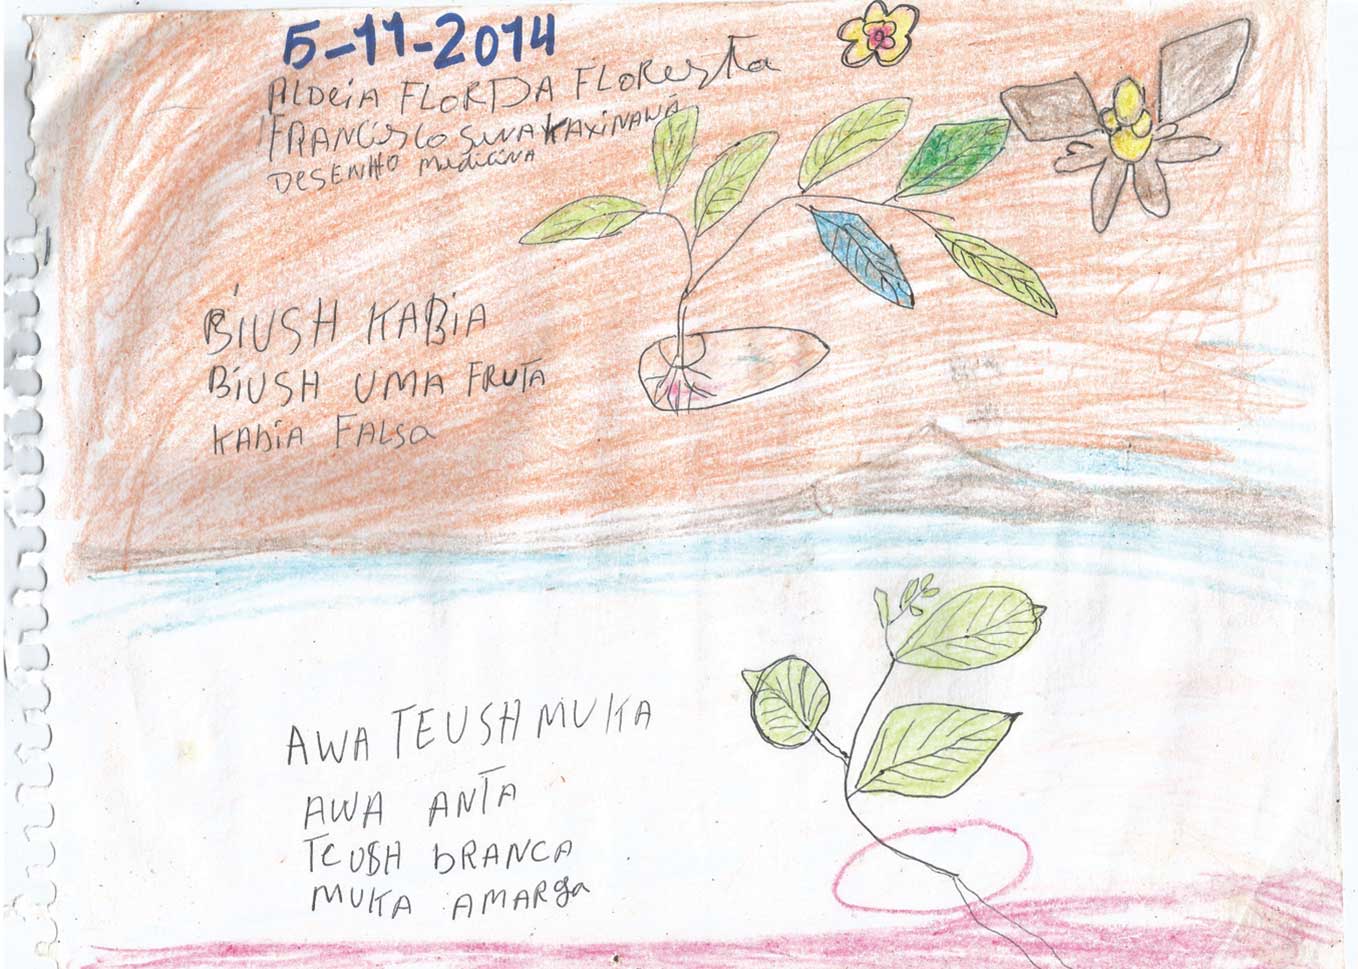 5-11-2014
ALDEIA FLOR DA FLORESTA
FRANCISCO SENA KAXINAWÁ
DESENHO medicina
BIUSH KABIA
BIUSH UMA FRUTA
KABIA FALSa
AWA TEUSH MUKA
AWA ANTA
TEUSH bRANCA
MUKA AMARga